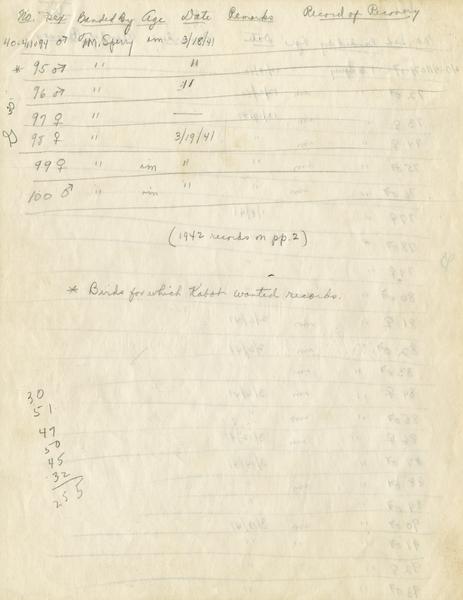 No. Sex Banded By Age Date Remarks Record of Recovery
♂ M. Sperry im 3/18/41
* 95 ♂ " "
96 ♂ " "
97 ♀ " —
98 ♀ " 3/19/41
99 ♀ " im "
100 ♂ " im "
(1942 records on pp. 2)
* Birds for which Kabat wanted records.
30
51
47
50
45
32
255